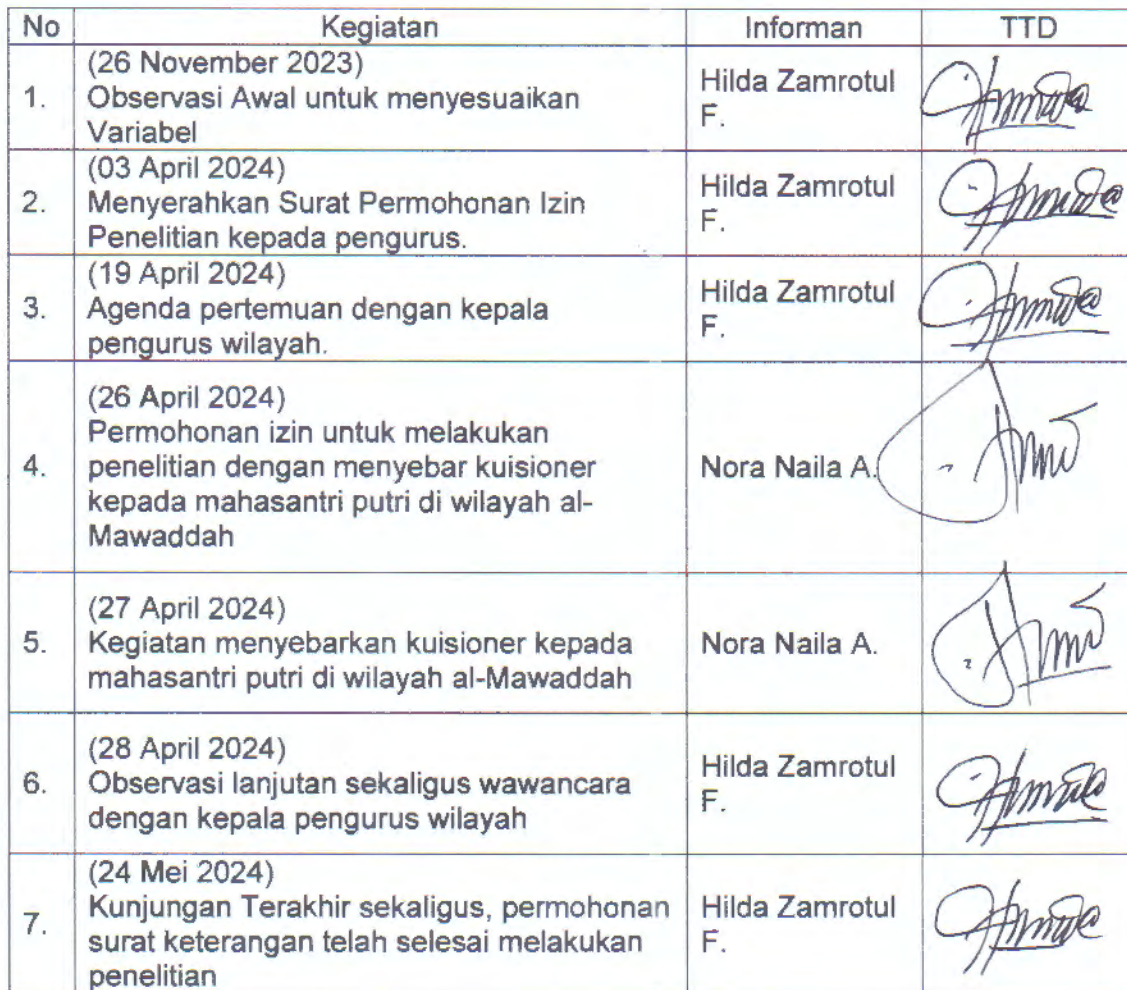 No Kegiatan Informan TTD
1. (26 November 2023)
Observasi Awal untuk menyesuaikan
Variabel
Hilda Zamrotul
F.
2. (03 April 2024)
Menyerahkan Surat Permohonan Izin
Penelitian kepada pengurus.
Hilda Zamrotul
F.
3. (19 April 2024)
Agenda pertemuan dengan kepala
pengurus wilayah.
Hilda Zamrotul
F.
4. (26 April 2024)
Permohonan izin untuk melakukan
penelitian dengan menyebar kuisioner
kepada mahasantri putri di wilayah al-
Mawaddah
Nora Naila A.
5. (27 April 2024)
Kegiatan menyebarkan kuisioner kepada
mahasantri putri di wilayah al-Mawaddah
Nora Naila A.
6. (28 April 2024)
Observasi lanjutan sekaligus wawancara
dengan kepala pengurus wilayah
Hilda Zamrotul
F.
7. (24 Mei 2024)
Kunjungan Terakhir sekaligus, permohonan
surat keterangan telah selesai melakukan
penelitian
Hilda Zamrotul
F.